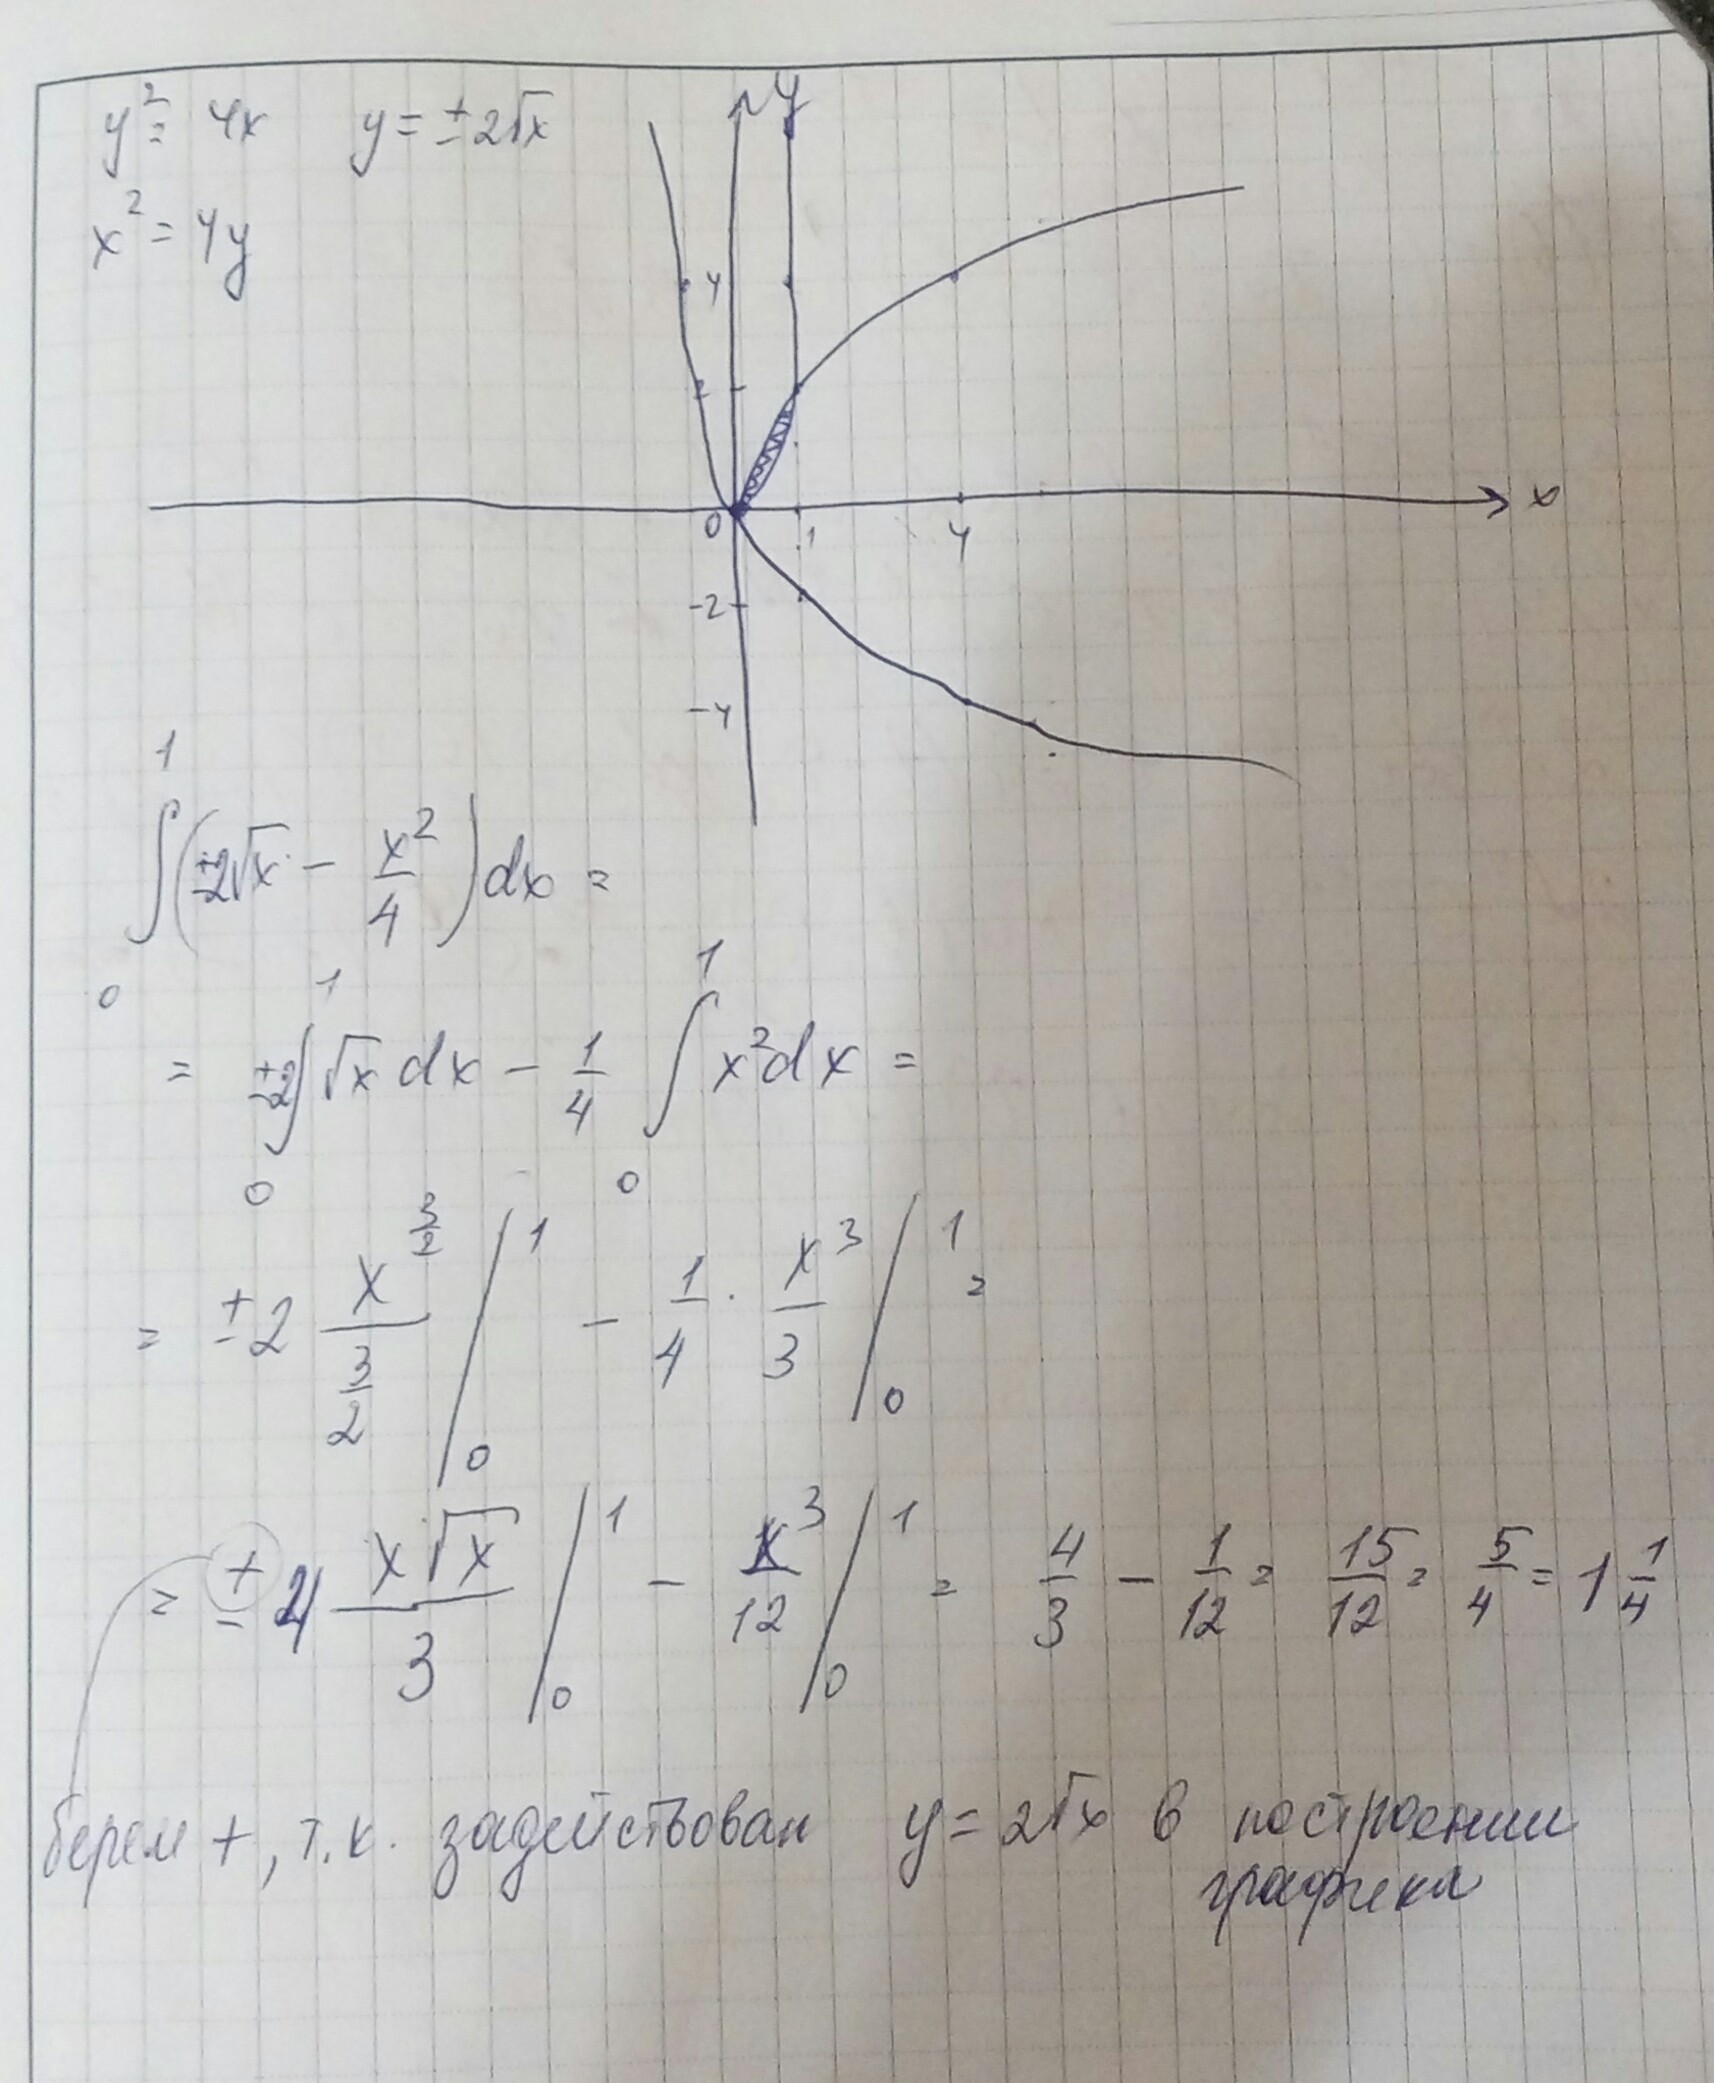 y² = 4x y = ±2√x
x² = 4y
y
4
2
0 1 4 x
-2
-4
∫₀¹ (±2√x - x²/4) dx =
= ±2 ∫₀¹ √x dx - 1/4 ∫₀¹ x² dx =
= ±2 x^(3/2)/(3/2) |₀¹ - 1/4 · x³/3 |₀¹ =
= ± 4 x√x/3 |₀¹ - x³/12 |₀¹ = 4/3 - 1/12 = 15/12 = 5/4 = 1 1/4
берем +, т.к. задействован y = 2√x в построении
графика